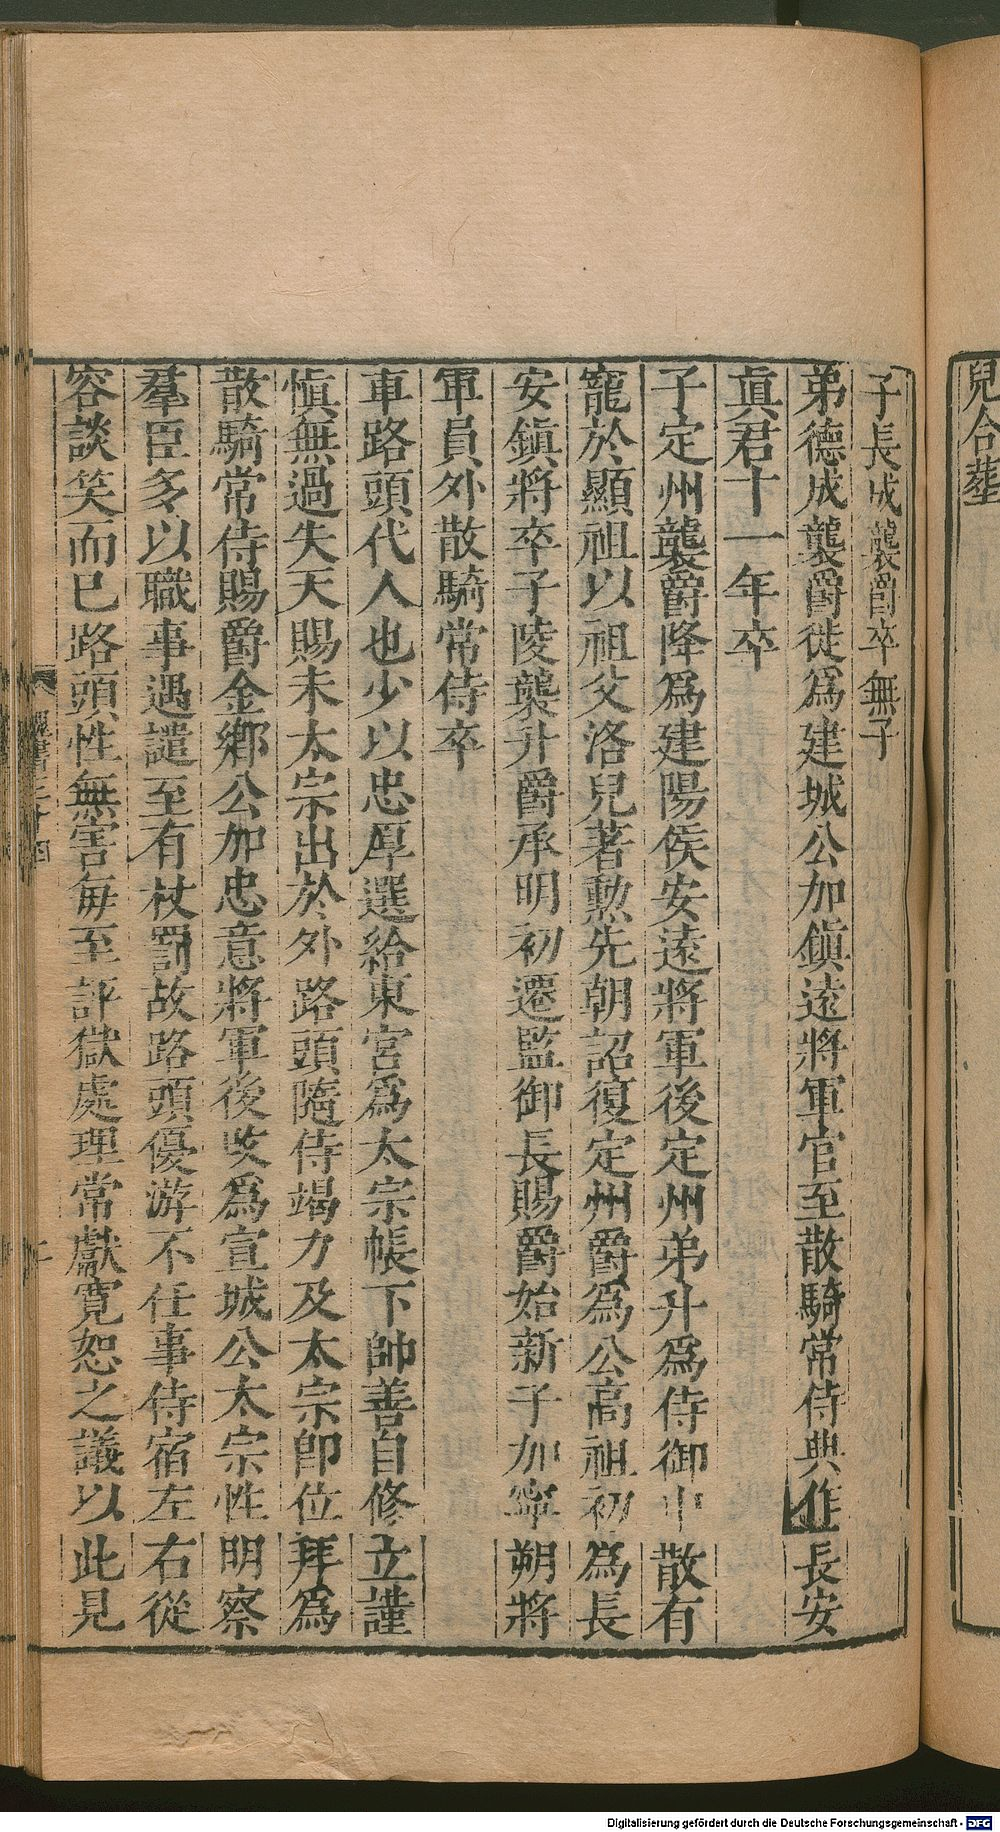 兒合葬
子長成襲爵卒無子
弟德成襲爵徙爲建城公加鎭遠將軍官至散騎常侍典作長安
眞君十一年卒
子定州襲爵降爲建陽侯安遠將軍後定州弟升爲侍御中散有
寵於顯祖以祖父洛兒著勲先朝詔復定州爵爲公高祖初爲長
安鎭將卒子陵襲升爵承明初遷監御長賜爵始新子加寧朔將
軍員外散騎常侍卒
車路頭代人也少以忠厚選給東宮爲太宗帳下帥善自修立謹
愼無過失天賜末太宗出於外路頭隨侍竭力及太宗卽位拜爲
散騎常侍賜爵金鄉公加忠意將軍後改爲宣城公太宗性明察
羣臣多以職事遇譴至有杖罰故路頭優游不任事侍宿左右從
容談笑而已路頭性無害每至評獄處理常獻寬恕之議以此見
魏書三十四
二
Digitalisierung gefördert durch die Deutsche Forschungsgemeinschaft - DFG